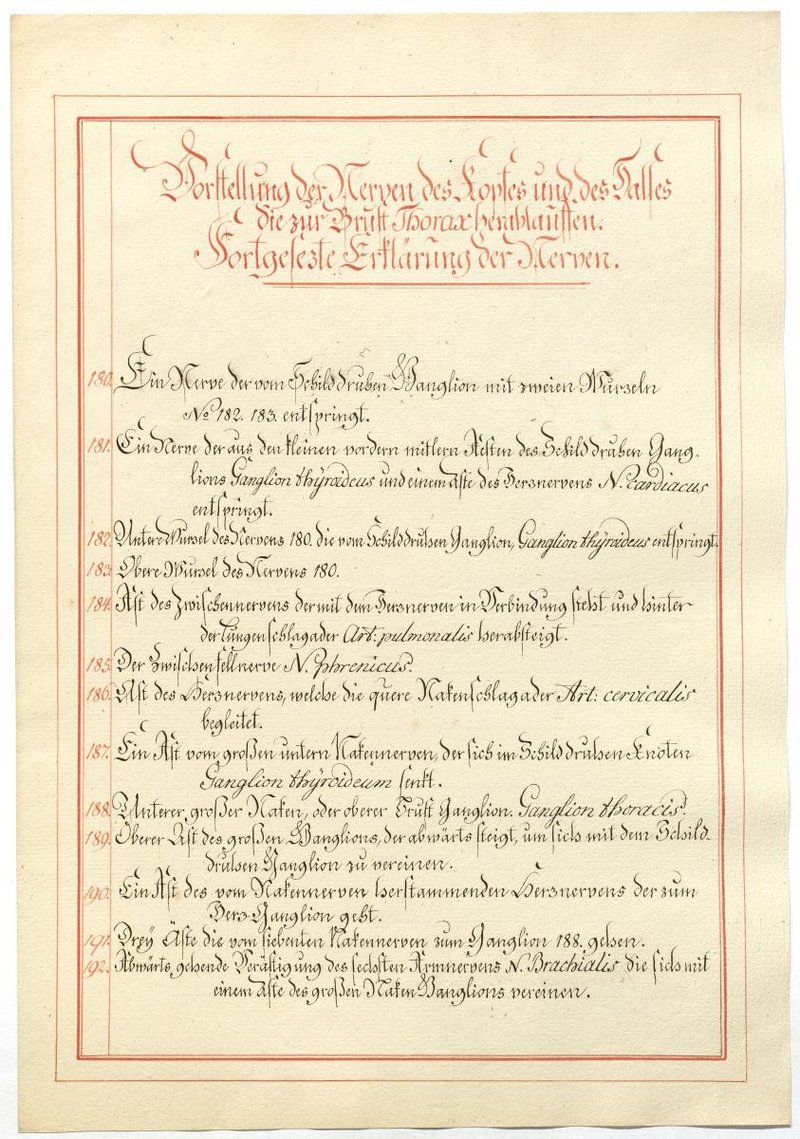 Vorstellung der Nerven des Kopfes und des Halses
die zur Brust Thorax herablauffen.
Fortgesezte Erklärung der Nerven.
180. Ein Nerve der vom Schilddrusen Ganglion mit zweien Wurzeln
No 182. 183. entspringt.
181. Ein Nerve der aus den kleinen vordern mitlern Aesten des Schilddrusen Gang-
lions Ganglion thÿroideus und einem Aste des Herznervens N. Cardiacus
entspringt.
182. Untere Wursel des Nervens 180. die vom Schilddrusen Ganglion, Ganglion thÿroideus entspringt.
183. Obere Wursel des Nervens 180.
184. Ast des Zwischennervens der mit dem Herznerven in Verbindung steht und hinter
der Lungenschlagader Art: pulmonalis herabsteigt.
185. Der Zwischenfellnerve N. Phrenicus.
186. Ast des Herznervens, welche die quere Nakenschlagader Art: cervicalis
begleitet.
187. Ein Ast vom großen untern Nakennerven, der sich im Schilddrusen Knoten
Ganglion thÿroideum senkt.
188. Unterer großer Naken, oder oberer Brust Ganglion. Ganglion thoracis.
189. Oberer Ast des großen Ganglions, der abwärts steigt, um sich mit dem Schild-
drusen Ganglion zu vereinen.
190. Ein Ast des vom Nakennerven herstammenden Herznervens der zum
Herz-Ganglion geht.
191. Dreÿ Äste die vom siebenten Nakennerven zum Ganglion 188. gehen.
192. Abwärts gehende Verästigung des sechsten Armnervens N. Brachialis die sich mit
einem Aste des großen Naken Ganglions vereinen.